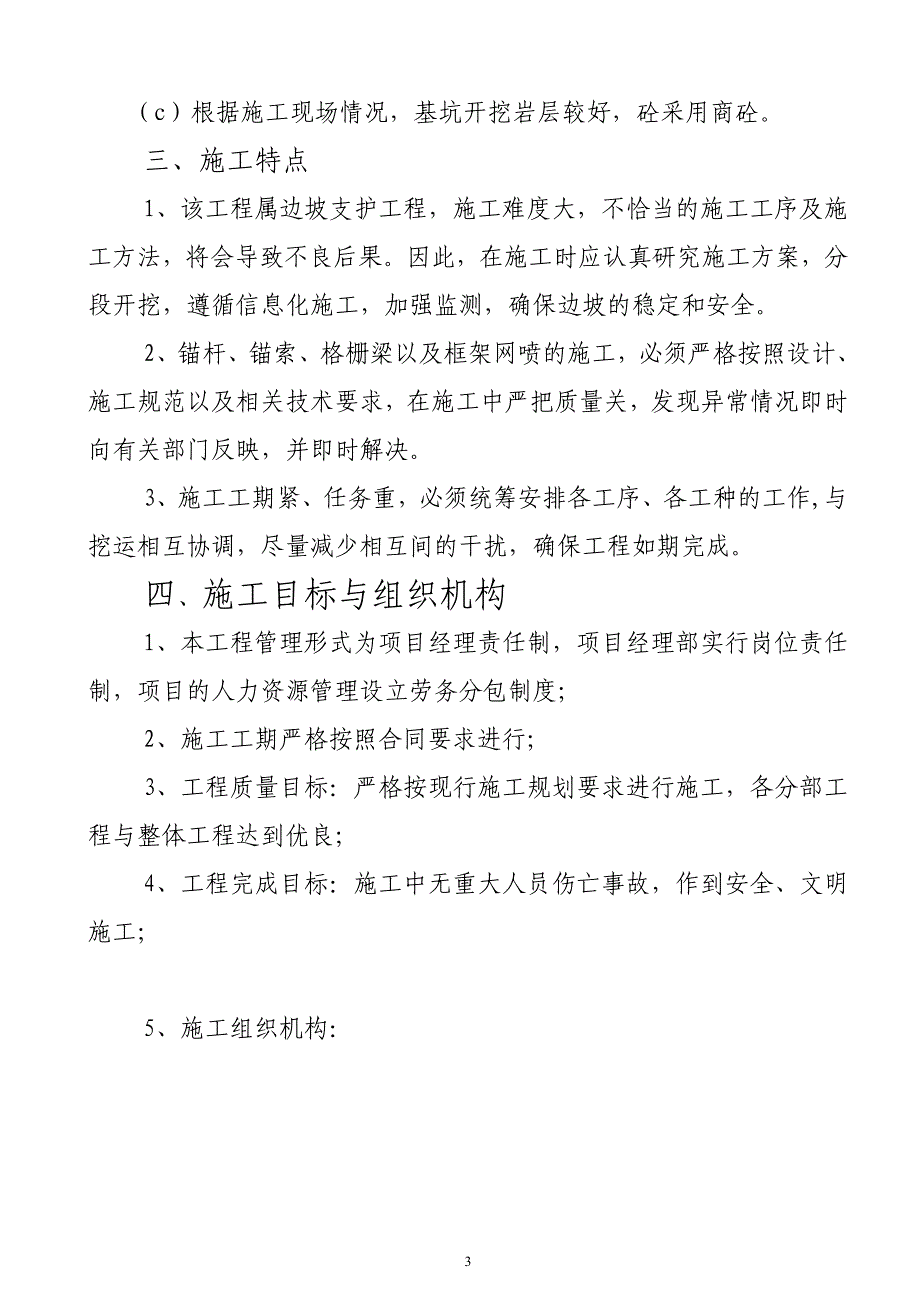 （c）根据施工现场情况，基坑开挖岩层较好，砼采用商砼。
三、施工特点
1、该工程属边坡支护工程，施工难度大，不恰当的施工工序及施
工方法，将会导致不良后果。因此，在施工时应认真研究施工方案，分
段开挖，遵循信息化施工，加强监测，确保边坡的稳定和安全。
2、锚杆、锚索、格栅梁以及框架网喷的施工，必须严格按照设计、
施工规范以及相关技术要求，在施工中严把质量关，发现异常情况即时
向有关部门反映，并即时解决。
3、施工工期紧、任务重，必须统筹安排各工序、各工种的工作,与
挖运相互协调，尽量减少相互间的干扰，确保工程如期完成。
四、施工目标与组织机构
1、本工程管理形式为项目经理责任制，项目经理部实行岗位责任
制，项目的人力资源管理设立劳务分包制度；
2、施工工期严格按照合同要求进行；
3、工程质量目标：严格按现行施工规划要求进行施工，各分部工
程与整体工程达到优良；
4、工程完成目标：施工中无重大人员伤亡事故，作到安全、文明
施工；
5、施工组织机构：
3